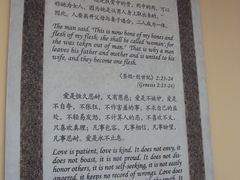 可以称她为女人，因为她是从男人身上取出来的。"
因此，人要离开父母与妻子连合，二人成为一体。
The man said, "This is now bone of my bones and
flesh of my flesh; she shall be called 'woman', for
she was taken out of man." That is why a man
leaves his father and mother and is united to his
wife, and they become one flesh.
《圣经·创世纪》2:23-24
(Genesis 2:23-24)
爱是恒久忍耐，又有恩慈；爱是不嫉妒，爱是
不自夸，不张狂，不作害羞的事，不求自己的益
处，不轻易发怒，不计算人的恶，不喜欢不义，
只喜欢真理；凡事包容，凡事相信，凡事盼望，
凡事忍耐。爱是永不止息。
Love is patient, love is kind. It does not envy, it
does not boast, it is not proud. It does not dis-
honor others, it is not self-seeking, it is not easily
angered, it keeps no record of wrongs. Love does